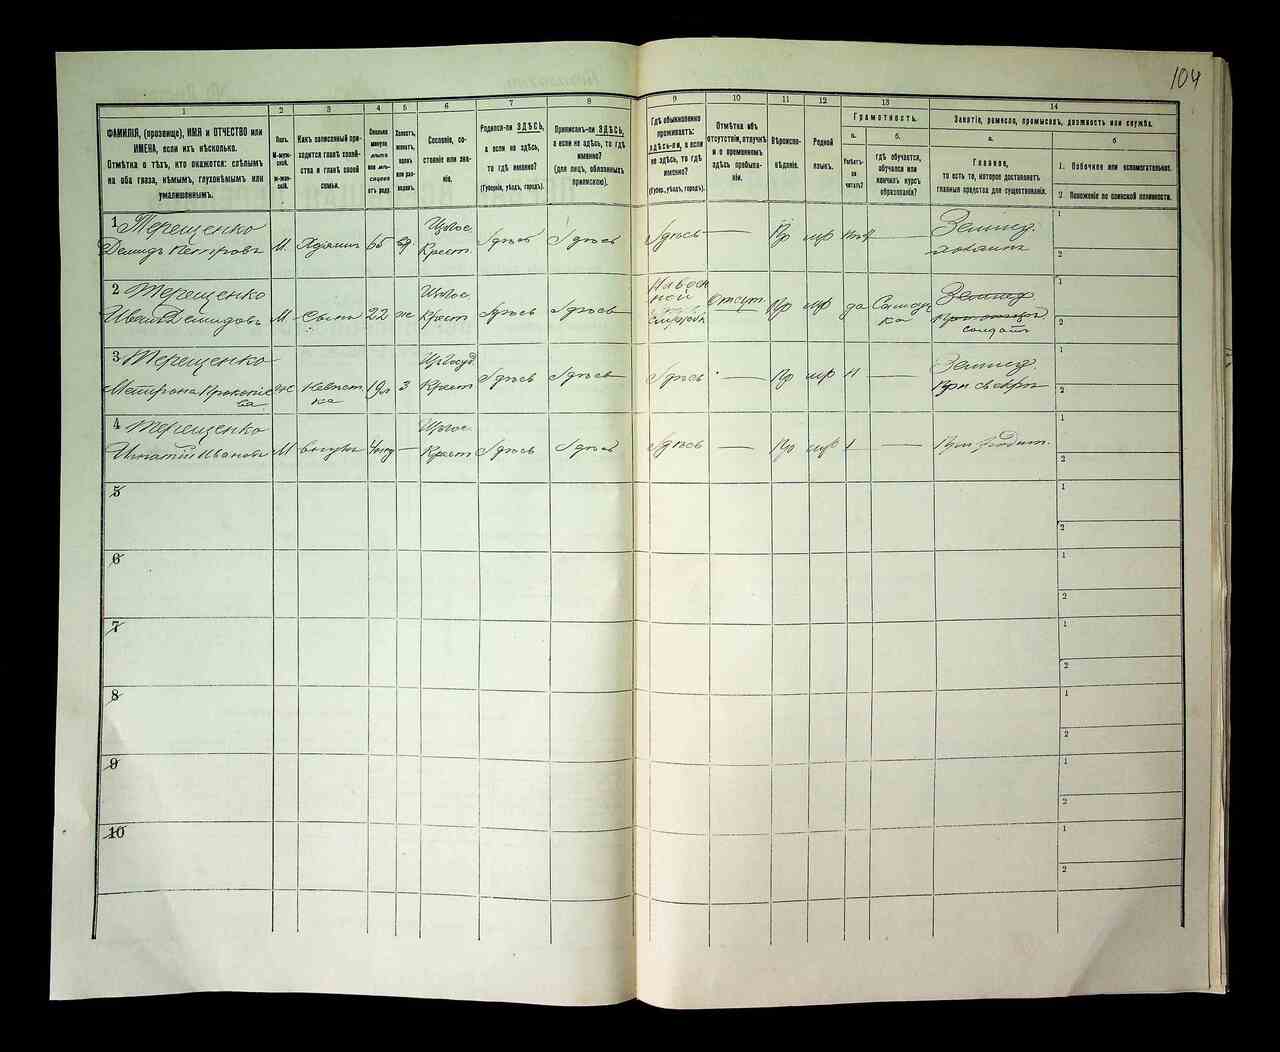 104
1
2
3
4
5
6
7
8
9
10
11
12
13
14
ФАМИЛІЯ, (прозвище), ИМЯ и ОТЧЕСТВО или
ИМЕНА, если ихъ нѣсколько.
Отмѣтка о тѣхъ, кто окажется: слѣпымъ
на оба глаза, нѣмымъ, глухонѣмымъ или
умалишеннымъ.
Полъ.
М-муж-
ской.
Ж-жен-
скій.
Какъ записанный при-
ходится главѣ хозяй-
ства и главѣ своей
семьи.
Сколько
минуло
лѣтъ
или мѣ-
сяцевъ
отъ роду.
Холостъ,
женатъ,
вдовъ
или раз-
веденъ.
Сословіе, со-
стояніе или зва-
ніе.
Родился-ли ЗДѢСЬ,
а если не здѣсь,
то гдѣ именно?
(Губернія, уѣздъ, городъ).
Приписанъ-ли ЗДѢСЬ,
а если не здѣсь, то гдѣ
именно?
(для лицъ, обязанныхъ
припискою).
Гдѣ обыкновенно
проживаетъ:
ЗДѢСЬ-ли, а если
не здѣсь, то гдѣ
именно?
(Губерн., уѣздъ, городъ).
Отмѣтка объ
отсутствіи, отлучкѣ
и о временномъ
здѣсь пребыва-
ніи.
Вѣроиспо-
вѣданіе.
Родной
языкъ.
Грамотность.
а.
Умѣетъ-
ли
читать?
б.
гдѣ обучается,
обучался или
кончилъ курсъ
образованія?
Занятіе, ремесло, промыселъ, должность или служба.
а.
Главное,
то есть то, которое доставляетъ
главныя средства для существованія.
б
1. Побочное или вспомогательное.
2 Положеніе по воинской повинности.
1 Терещенко
Демидъ Петровъ М. Хозяинъ 65
Крест. Здѣсь Здѣсь Здѣсь — Пр мр —
Землед.
хозяинъ
1
2
2 Терещенко
Иванъ Демидовъ М Сынъ 22 ж
Крест Здѣсь Здѣсь
Отсут. Пр мр да
Землед
солдатъ
1
2
3 Терещенко
ж Невѣст
ка 19 з
Крест Здѣсь Здѣсь Здѣсь — Пр мр н —
Землед.
При свекрѣ
1
2
4 Терещенко
Игнатій Ивановъ М внукъ —
Крест Здѣсь Здѣсь Здѣсь — Пр мр —
При родит.
1
2
5
1
2
6
1
2
7
1
2
8
1
2
9
1
2
10
1
2